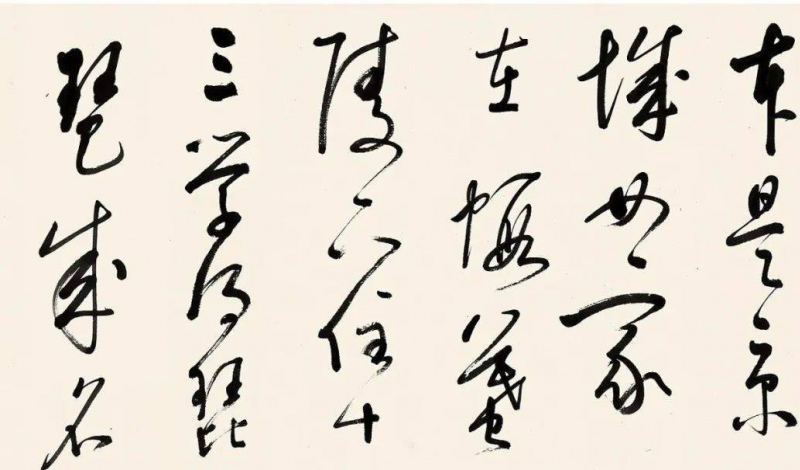 本是京
城女家
在蝦蟆
陵下住十
三学得琵
琶成名